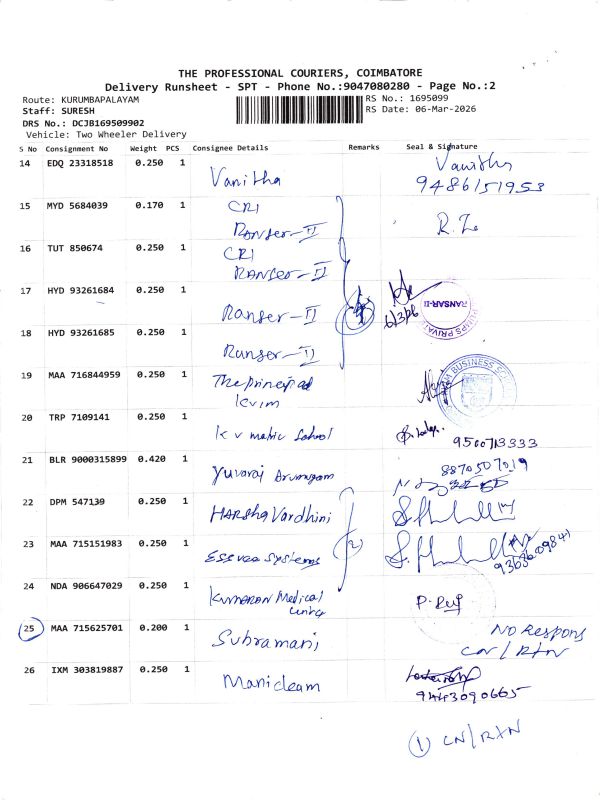 THE PROFESSIONAL COURIERS, COIMBATORE
Delivery Runsheet - SPT - Phone No.:9047080280 - Page No.:2
Route: KURUMBAPALAYAM RS No.: 1695099
Staff: SURESH RS Date: 06-Mar-2026
DRS No.: DCJB169509902
Vehicle: Two Wheeler Delivery
S No Consignment No Weight PCS Consignee Details Remarks Seal & Signature
14 EDQ 23318518 0.250 1 Vanitha Vanitha
9486151953
15 MYD 5684039 0.170 1 CRI
Ranser-II
16 TUT 850674 0.250 1 CRI
Ranser-II
17 HYD 93261684 0.250 1 Ranser-II
6/3/26 RANSAR-II
18 HYD 93261685 0.250 1 Ranser-II
19 MAA 716844959 0.250 1 The principal
kvim BUSINESS
20 TRP 7109141 0.250 1 k v matric school
9500713333
21 BLR 9000315899 0.420 1 Yuvaraj Arumugam 8870507019
22 DPM 547139 0.250 1 Harsha Vardhini
23 MAA 715151983 0.250 1 Essvee Systems (2)
9363609841
24 NDA 906647029 0.250 1 Kumaran Medical
Centre
25 MAA 715625701 0.200 1 Subramani No Respons
CN/RTN
26 IXM 303819887 0.250 1 Manickam
9443090665
1 CN/RTN